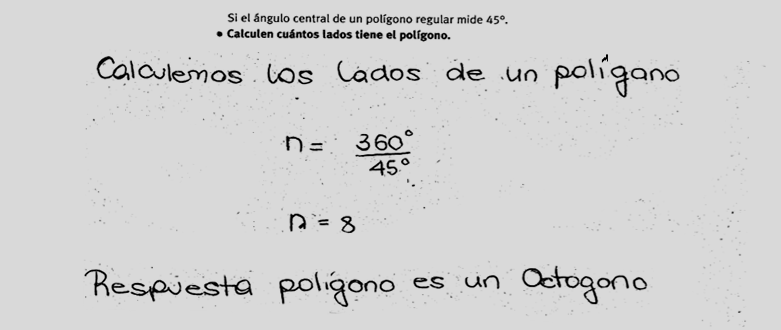 Si el ángulo central de un polígono regular mide 45º.
• Calculen cuántos lados tiene el polígono.
Calculemos los lados de un polígano
n = 360°
45°
n = 8
Respuesta polígono es un Octogono